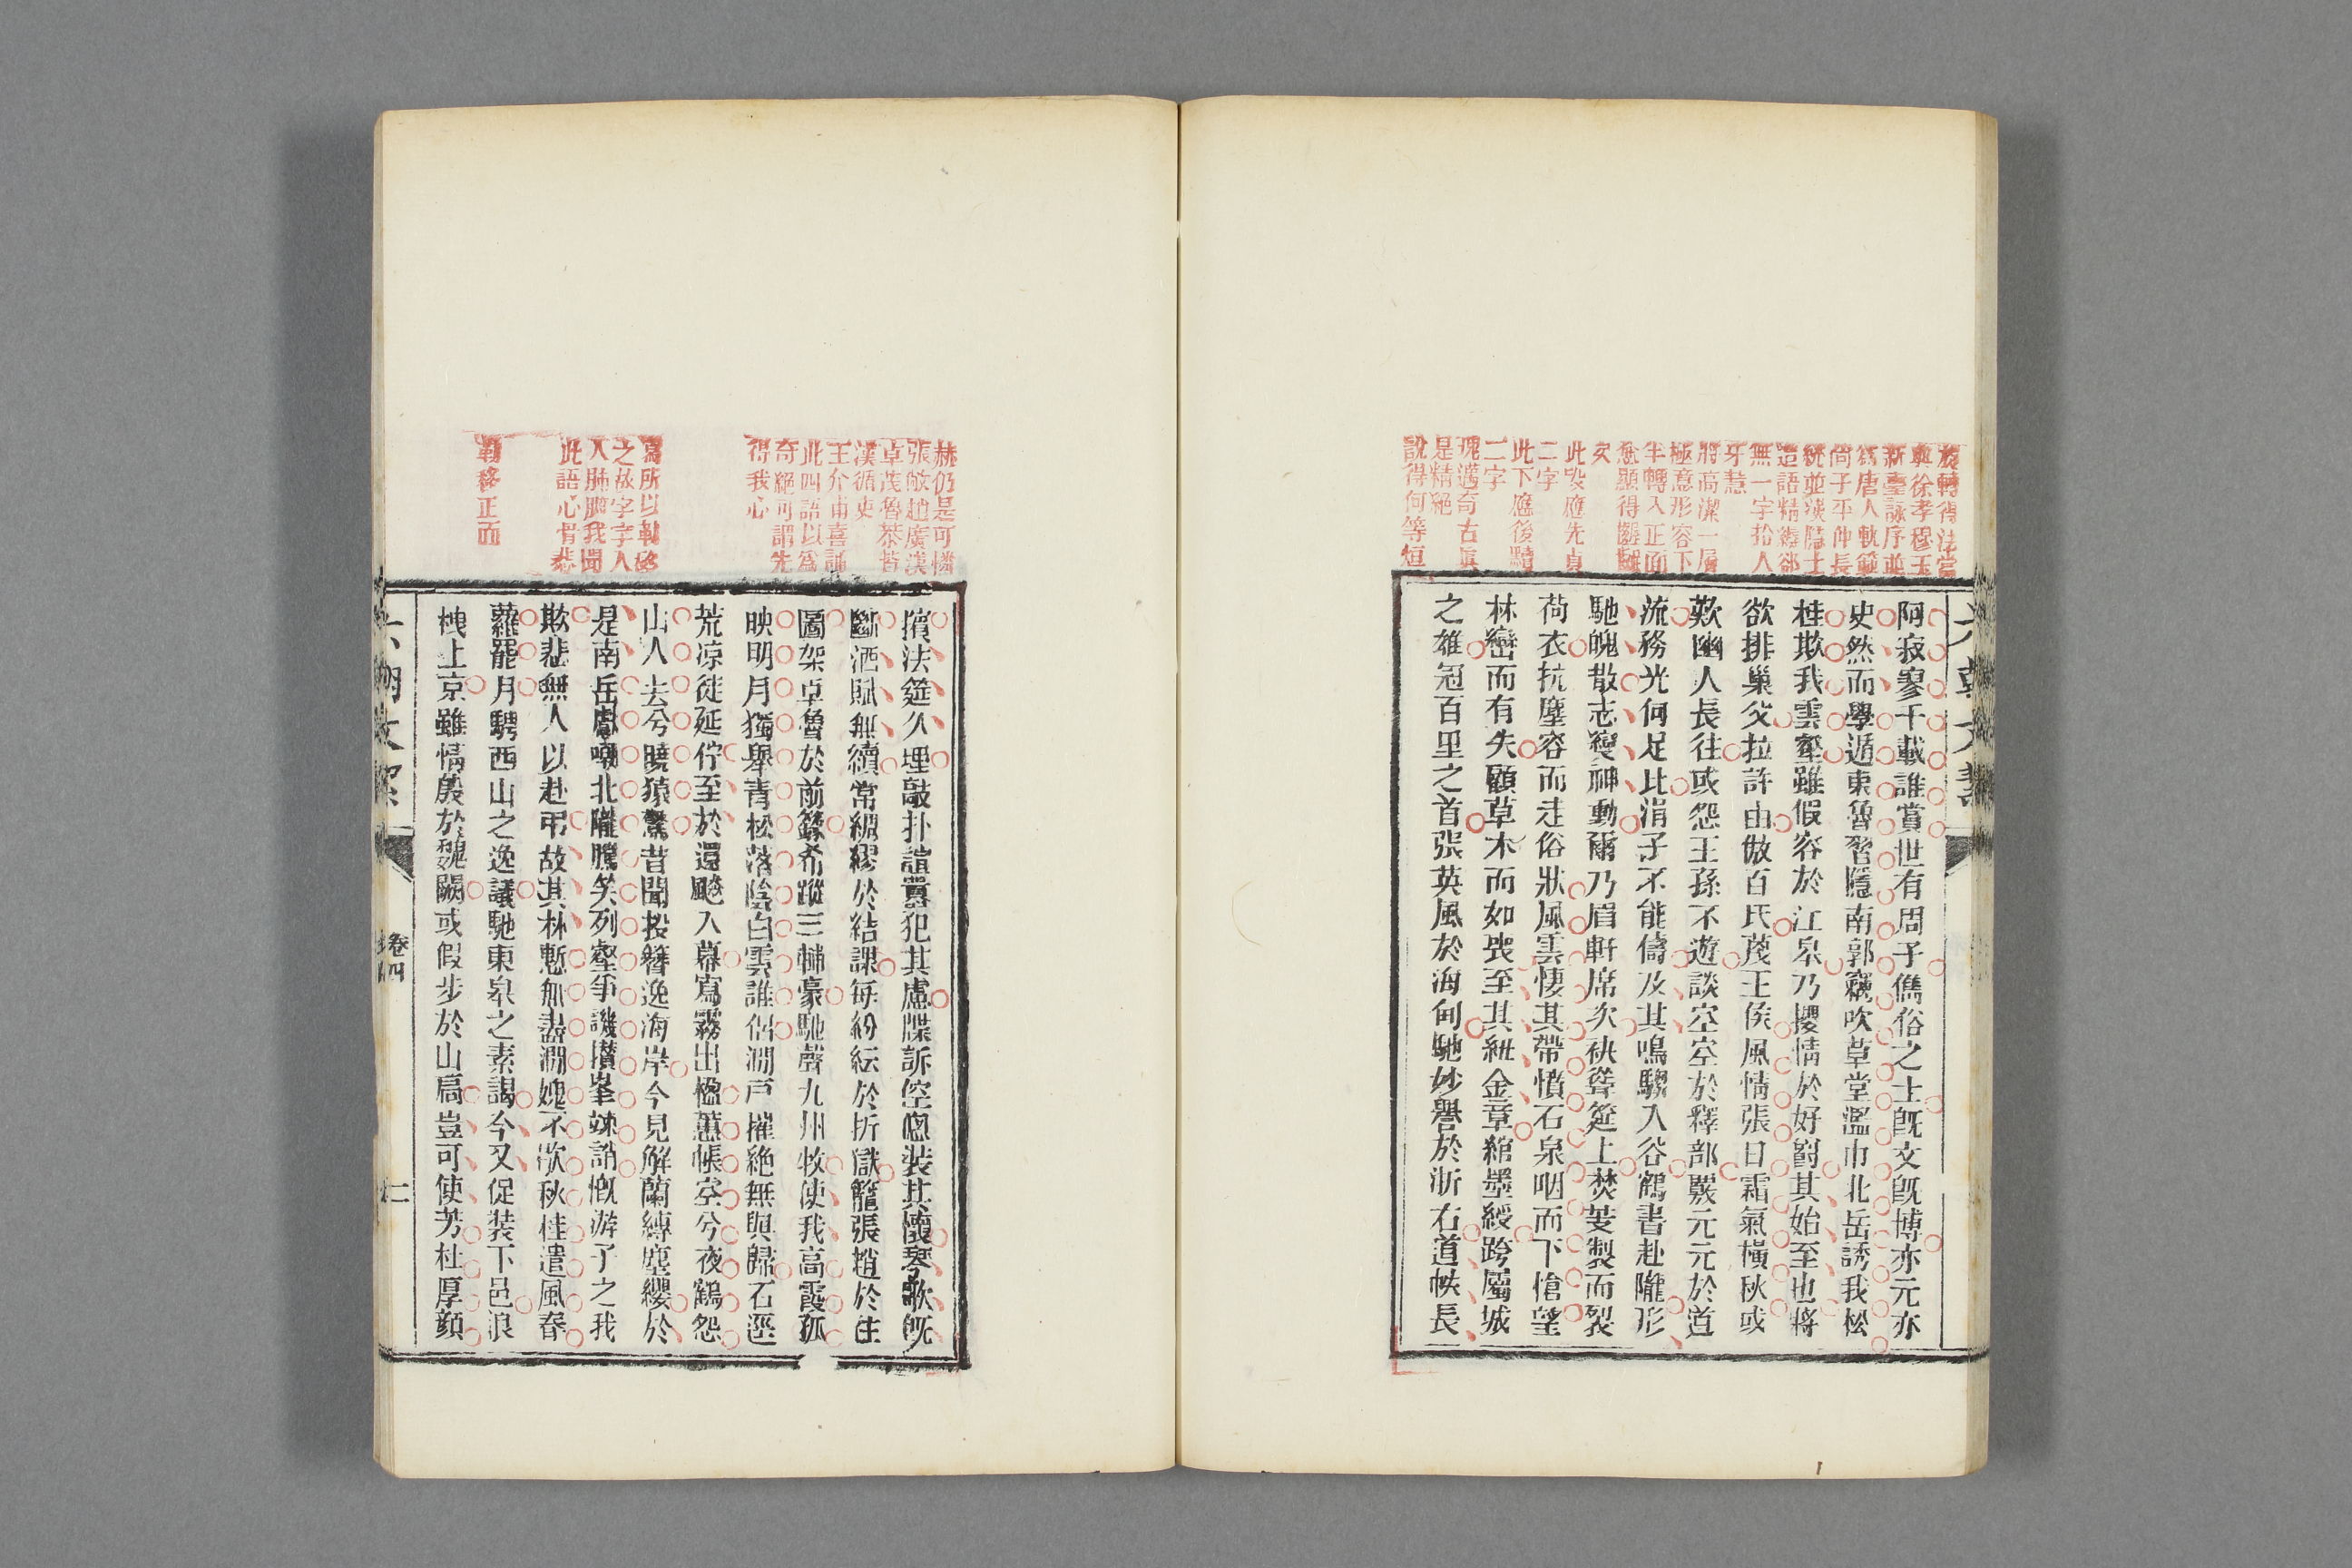 旋轉得法當
與徐孝穆玉
新臺詠序並
爲唐人軌範
尚子平仲長
統並漢隱士
造語精緻卻
無一字拾人
牙慧
將高潔一層
極意形容下
半轉入正面
愈顯得齷齪
矣
此段應先貞
二字
此下應後黷
二字
瑰邁奇古眞
是精絕
說得何等烜
阿寂寥千載誰賞世有周子儁俗之士旣文旣博亦元亦
史然而學遁東魯習隱南郭竊吹草堂濫巾北岳誘我松
桂欺我雲壑雖假容於江皋乃攖情於好爵其始至也將
欲排巢父拉許由傲百氏蔑王侯風情張日霜氣橫秋或
歎幽人長往或怨王孫不遊談空空於釋部覈元元於道
流務光何足比涓子不能儔及其鳴騶入谷鶴書赴隴形
馳魄散志變神動爾乃眉軒席次袂聳筵上焚芰製而裂
荷衣抗塵容而走俗狀風雲悽其帶憤石泉咽而下愴望
林巒而有失顧草木而如喪至其紐金章綰墨綬跨屬城
之雄冠百里之首張英風於海甸馳妙譽於浙右道帙長
赫仍是可憐
張敞趙廣漢
卓茂魯恭皆
漢循吏
王介甫喜誦
此四語以爲
奇絕可謂先
得我心
寫所以勒移
之故字字人
人肺腑我聞
此語心骨悲
勒移正面
擯法筵久埋敲扑諠囂犯其慮牒訴倥傯裝其懷琴歌旣
斷洒賦無續常綢繆於結課每紛紜於折獄籠張趙於往
圖架卓魯於前籙希蹤三輔豪馳聲九州牧使我高霞孤
映明月獨舉青松落陰白雲誰侶澗戸摧絕無與歸石逕
荒凉徒延佇至於還飈入幕寫霧出楹蕙帳空兮夜鶴怨
山人去兮曉猿驚昔聞投簪逸海岸今見解蘭縛塵纓於
是南岳獻嘲北隴騰笑列壑爭譏攢峯竦誚慨游子之我
欺悲無人以赴弔故其林慙無盡澗媿不歇秋桂遣風春
蘿罷月騁西山之逸議馳東皋之素謁今又促裝下邑浪
栧上京雖情殷於魏闕或假步於山扃豈可使芳杜厚顔
六朝文絜
卷四
二